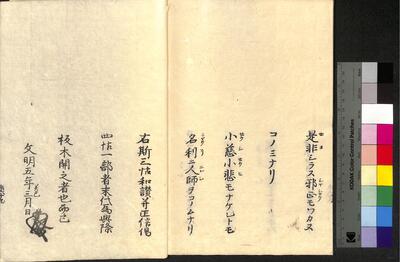 是非シラス邪正モワカヌ
コノミナリ
小慈小悲モナケレトモ
名利ニ人師ヲコノムナリ
右斯三帖和讃并正信偈
四帖一部者末代為興際
板木開之者也而已
文明五年三月日
KODAK Color Control Patches